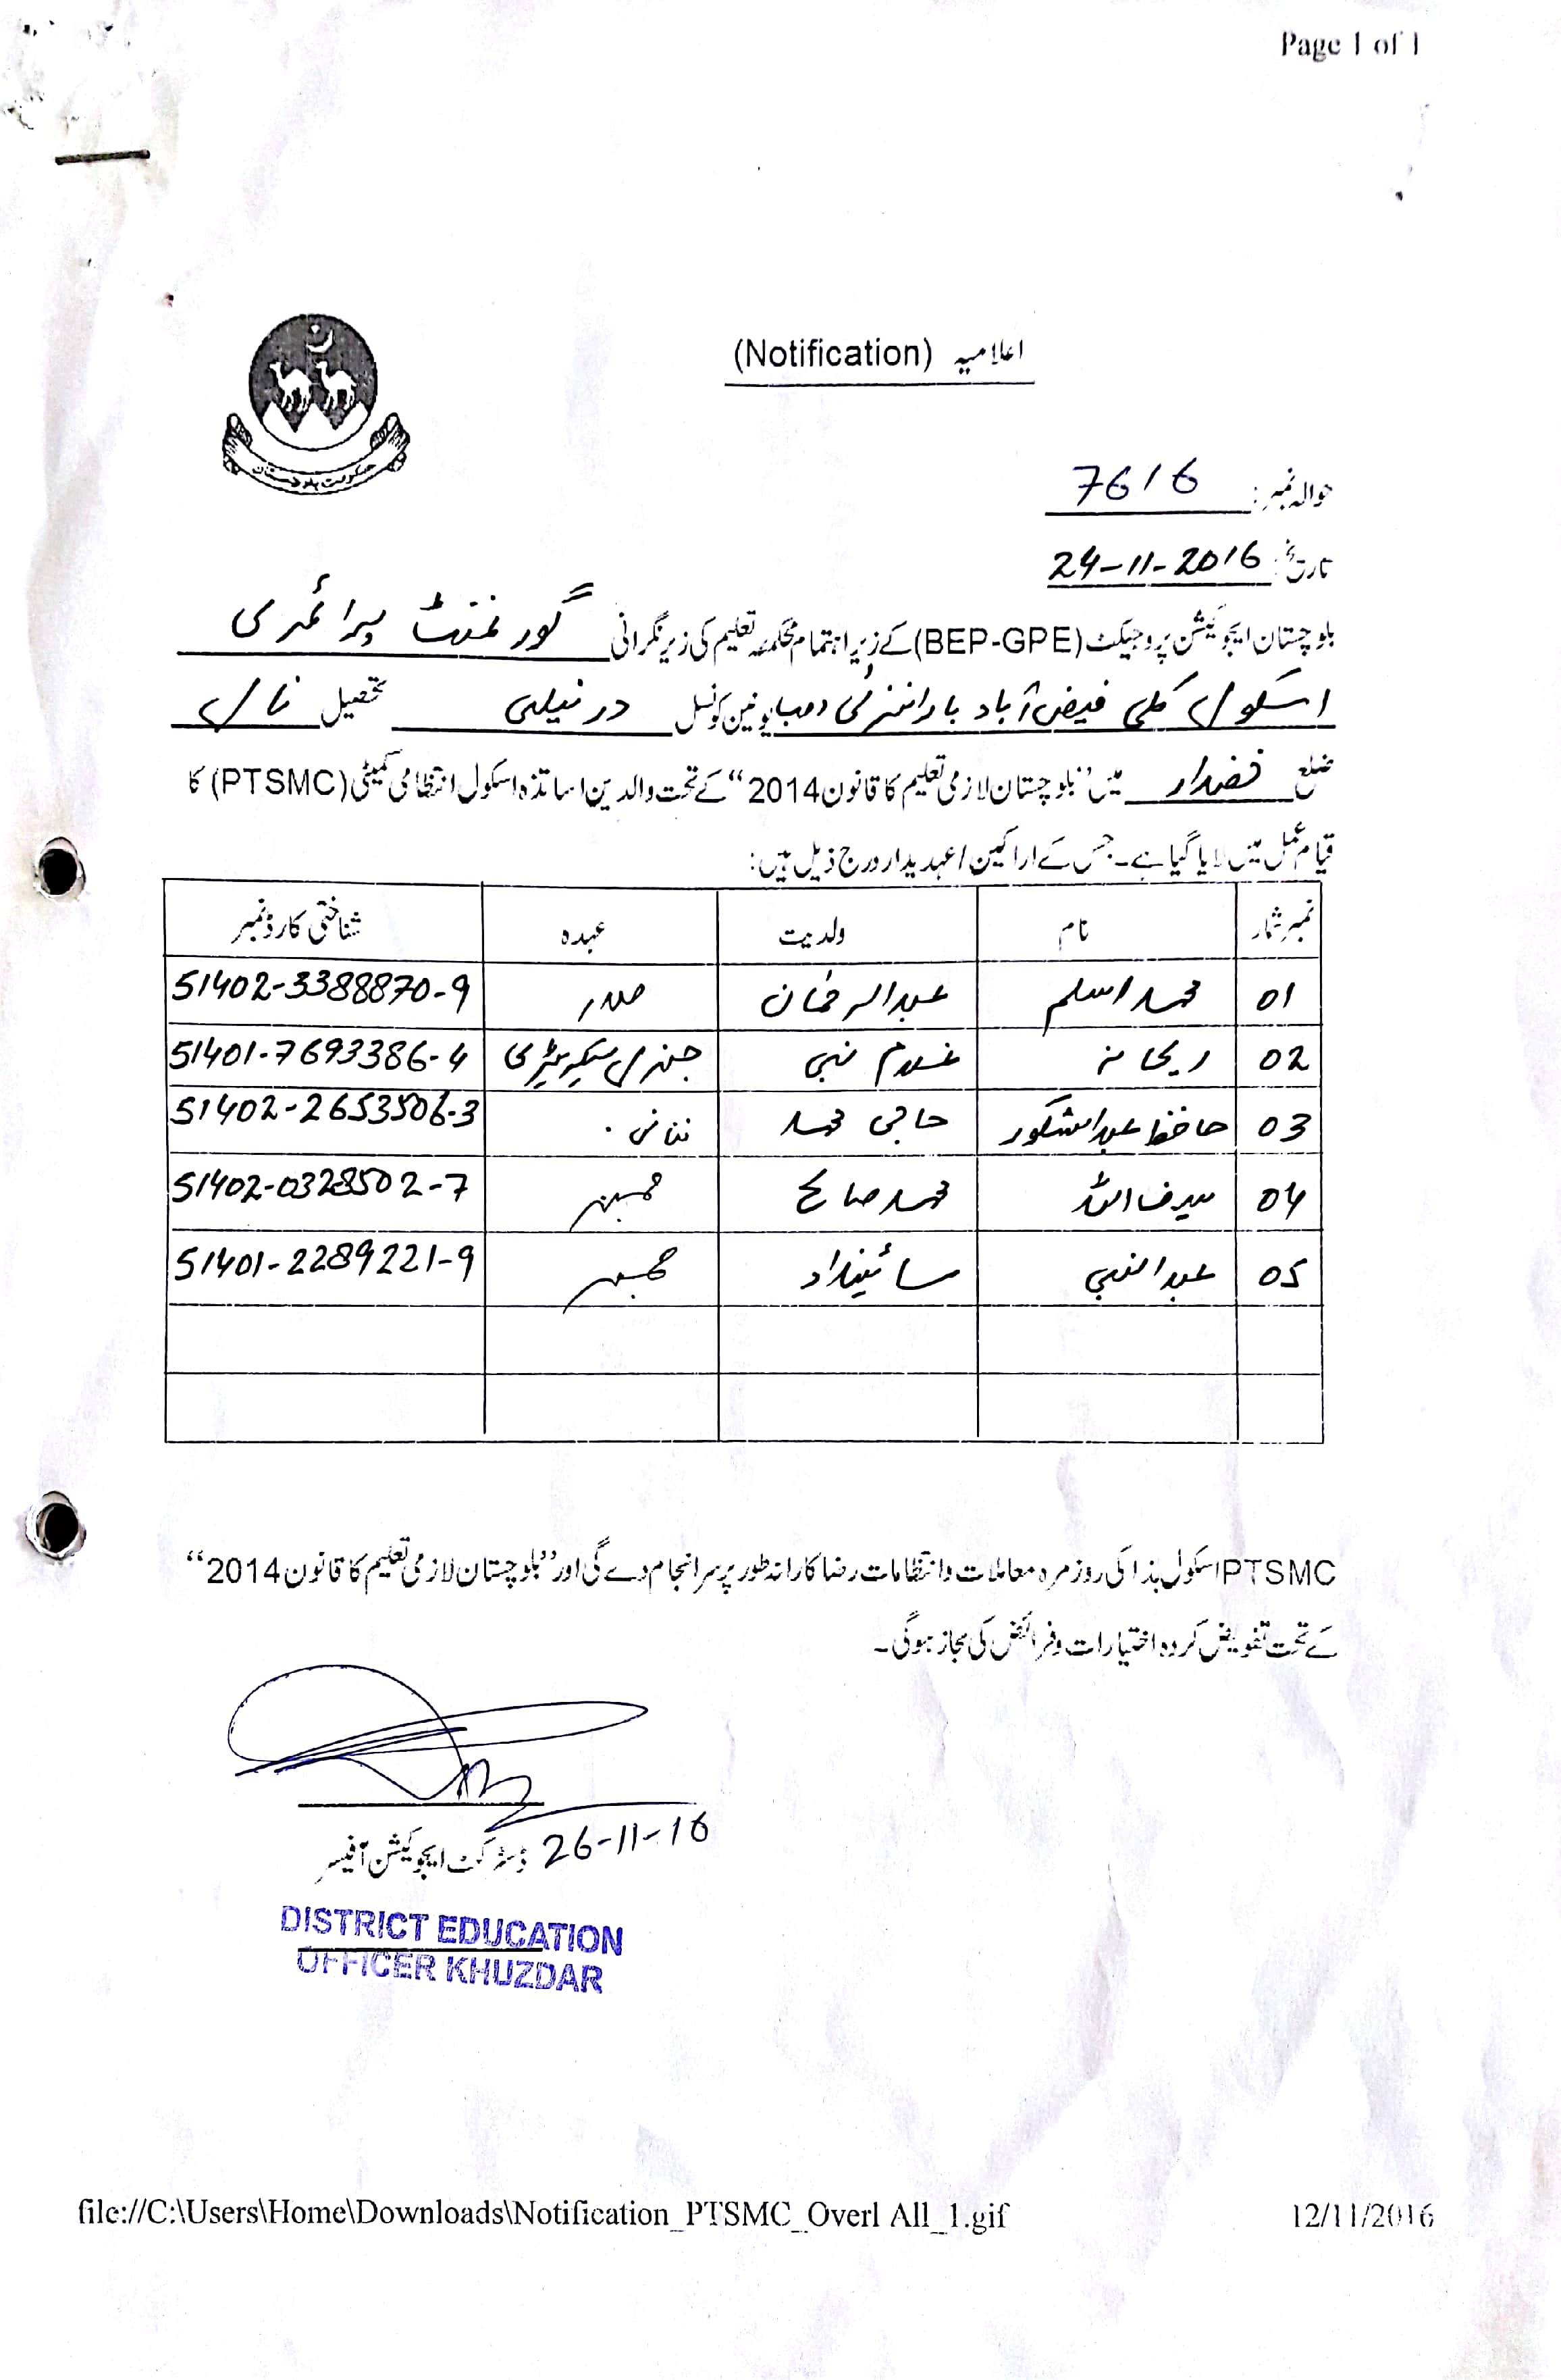 Page 1 of 1
اعلامیہ (Notification)
حکومت بلوچستان
حوالہ نمبر: 7616
تاریخ: 24-11-2016
بلوچستان ایجوکیشن پروجیکٹ (BEP-GPE) کے زیر اہتمام محکمہ تعلیم کی زیر نگرانی گورنمنٹ پرائمری
اسکول کلی فیض آباد یونین کونسل درنیلی تحصیل نال
ضلع خضدار میں "بلوچستان لازمی تعلیم کا قانون 2014" کے تحت والدین اساتذہ اسکول انتظامی کمیٹی (PTSMC) کا
قیام عمل میں لایا گیا ہے۔ جس کے اراکین / عہدیدار درج ذیل ہیں:
نمبر شمار نام ولدیت عہدہ شناختی کارڈ نمبر
01 محمد اسلم عبدالرحمان صدر 51402-3388870-9
02 ریحانہ غلام نبی جنرل سیکریٹری 51401-7693386-4
03 حافظ عبدالشکور حاجی محمد 51402-2653506-3
04 سیف اللہ محمد صالح ممبر 51402-0328502-7
05 عبدالنبی سائینداد ممبر 51401-2289221-9
PTSMC اسکول ہذا کی روزمرہ معاملات و انتظامات رضاکارانہ طور پر سرانجام دے گی اور "بلوچستان لازمی تعلیم کا قانون 2014"
کے تحت تفویض کردہ اختیارات و فرائض کی مجاز ہوگی۔
26-11-16
ڈسٹرکٹ ایجوکیشن آفیسر
DISTRICT EDUCATION
OFFICER KHUZDAR
file://C:\Users\Home\Downloads\Notification_PTSMC_Overl All_1.gif 12/11/2016